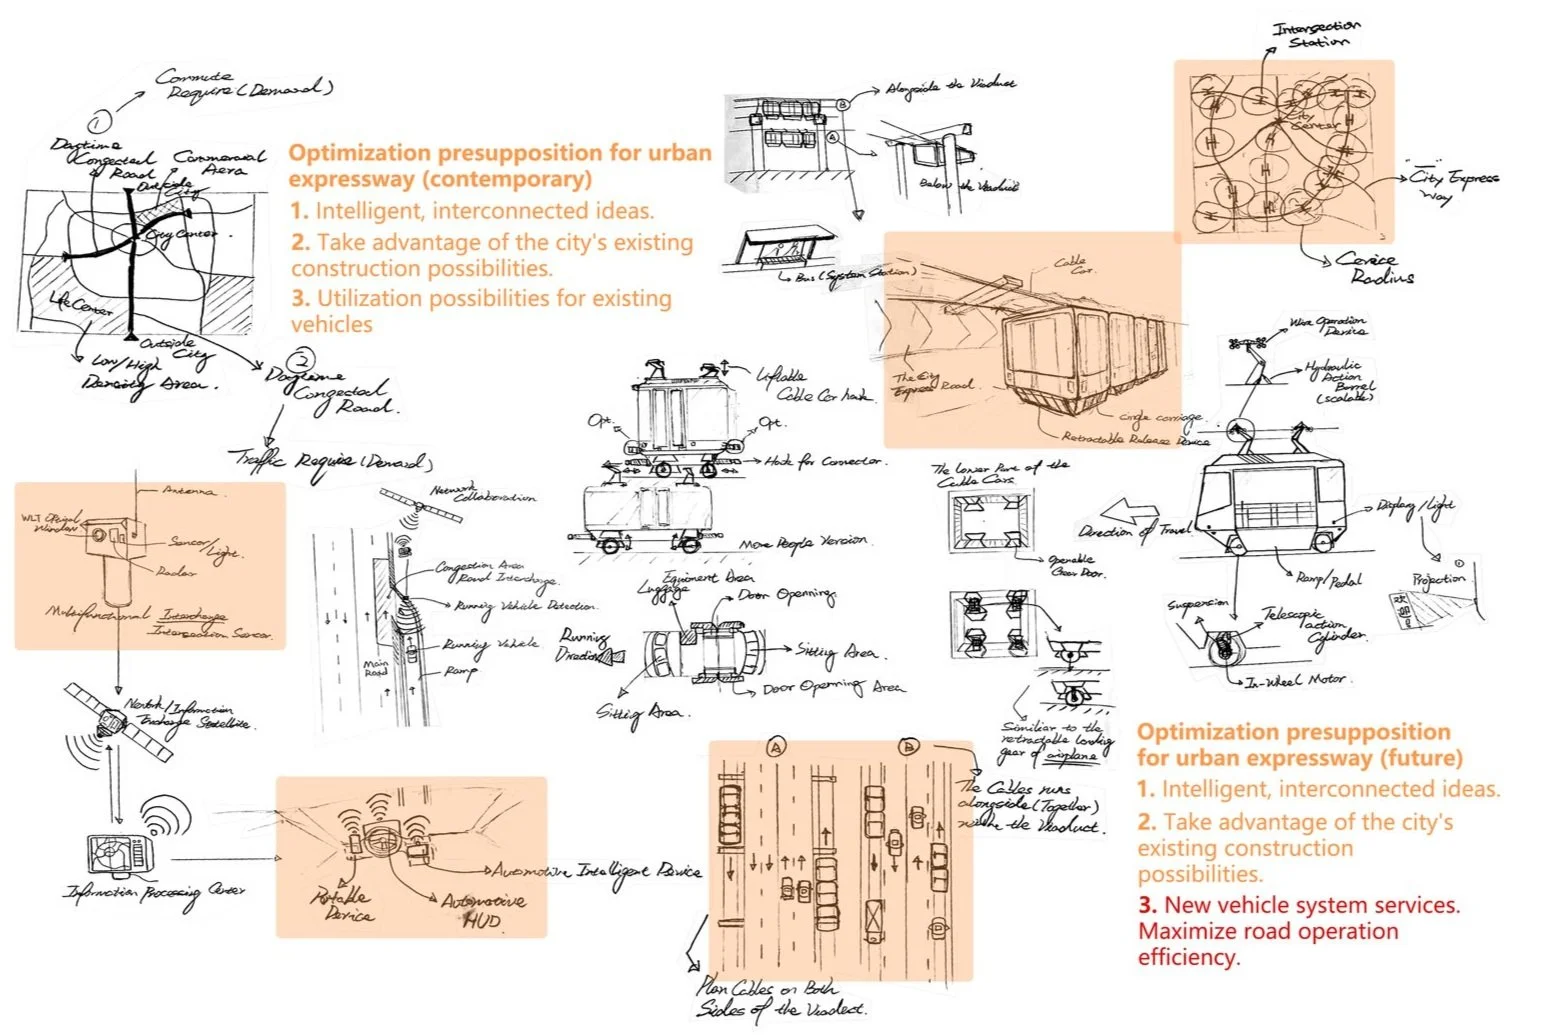 Commute
Require (Demand)
①
Daytime
Congected
Road
Commercial
Aera
Outside
City
City Center
Life Center
Outside
City
Low/High
Density Area.
②
Daytime
Congected
Road.
Traffic Require (Demand)
Optimization presupposition for urban
expressway (contemporary)
1. Intelligent, interconnected ideas.
2. Take advantage of the city's existing
construction possibilities.
3. Utilization possibilities for existing
vehicles
B
Alongside the Viaduct
A
Below the Viaduct
Bus (System Station)
Intersection
Station
City
Center
City Express
Way
Cervice
Radius
Cable
Car.
The City
Express Road.
Single carriage.
Retractable Release Device
Wire Operation
Device
Hydraulic
Action
Barrel
(scalable)
Liftable
Cable Car hook.
Opt.
Opt.
Hook for Connector.
More People Version.
The Lower Part of the
Cable Cars
Openable
Gear Door.
Direction of Travel
Display/Light
Ramp/Pedal
Projection
①
欢迎
Suspension
Telescopic
action
Cylinder.
In-Wheel Motor.
Antenna.
Window
Sensor/
Light.
Radar
Multifunctional Interchange
Intersection Sensor.
Network
Collaboration
Congestion Area
Road Interchange.
Running Vehicle Detection.
Running Vehicle
Ramp
Main
Road
Equipment Area
Luggage
Door Openning
Running
Direction
Sitting Area.
Door Openning Area
Sitting Area.
Similiar to the
retractable landing
gear of airplane
Information
Satellite.
Information Processing Center
Portable
Device
Automotive
HUD.
Automotive Intelligent Device
A
B
The Cables runs
alongside (Together)
the Viaduct.
Plan Cables on Both
Sides of the Viaduct.
Optimization presupposition
for urban expressway (future)
1. Intelligent, interconnected ideas.
2. Take advantage of the city's
existing construction
possibilities.
3. New vehicle system services.
Maximize road operation
efficiency.